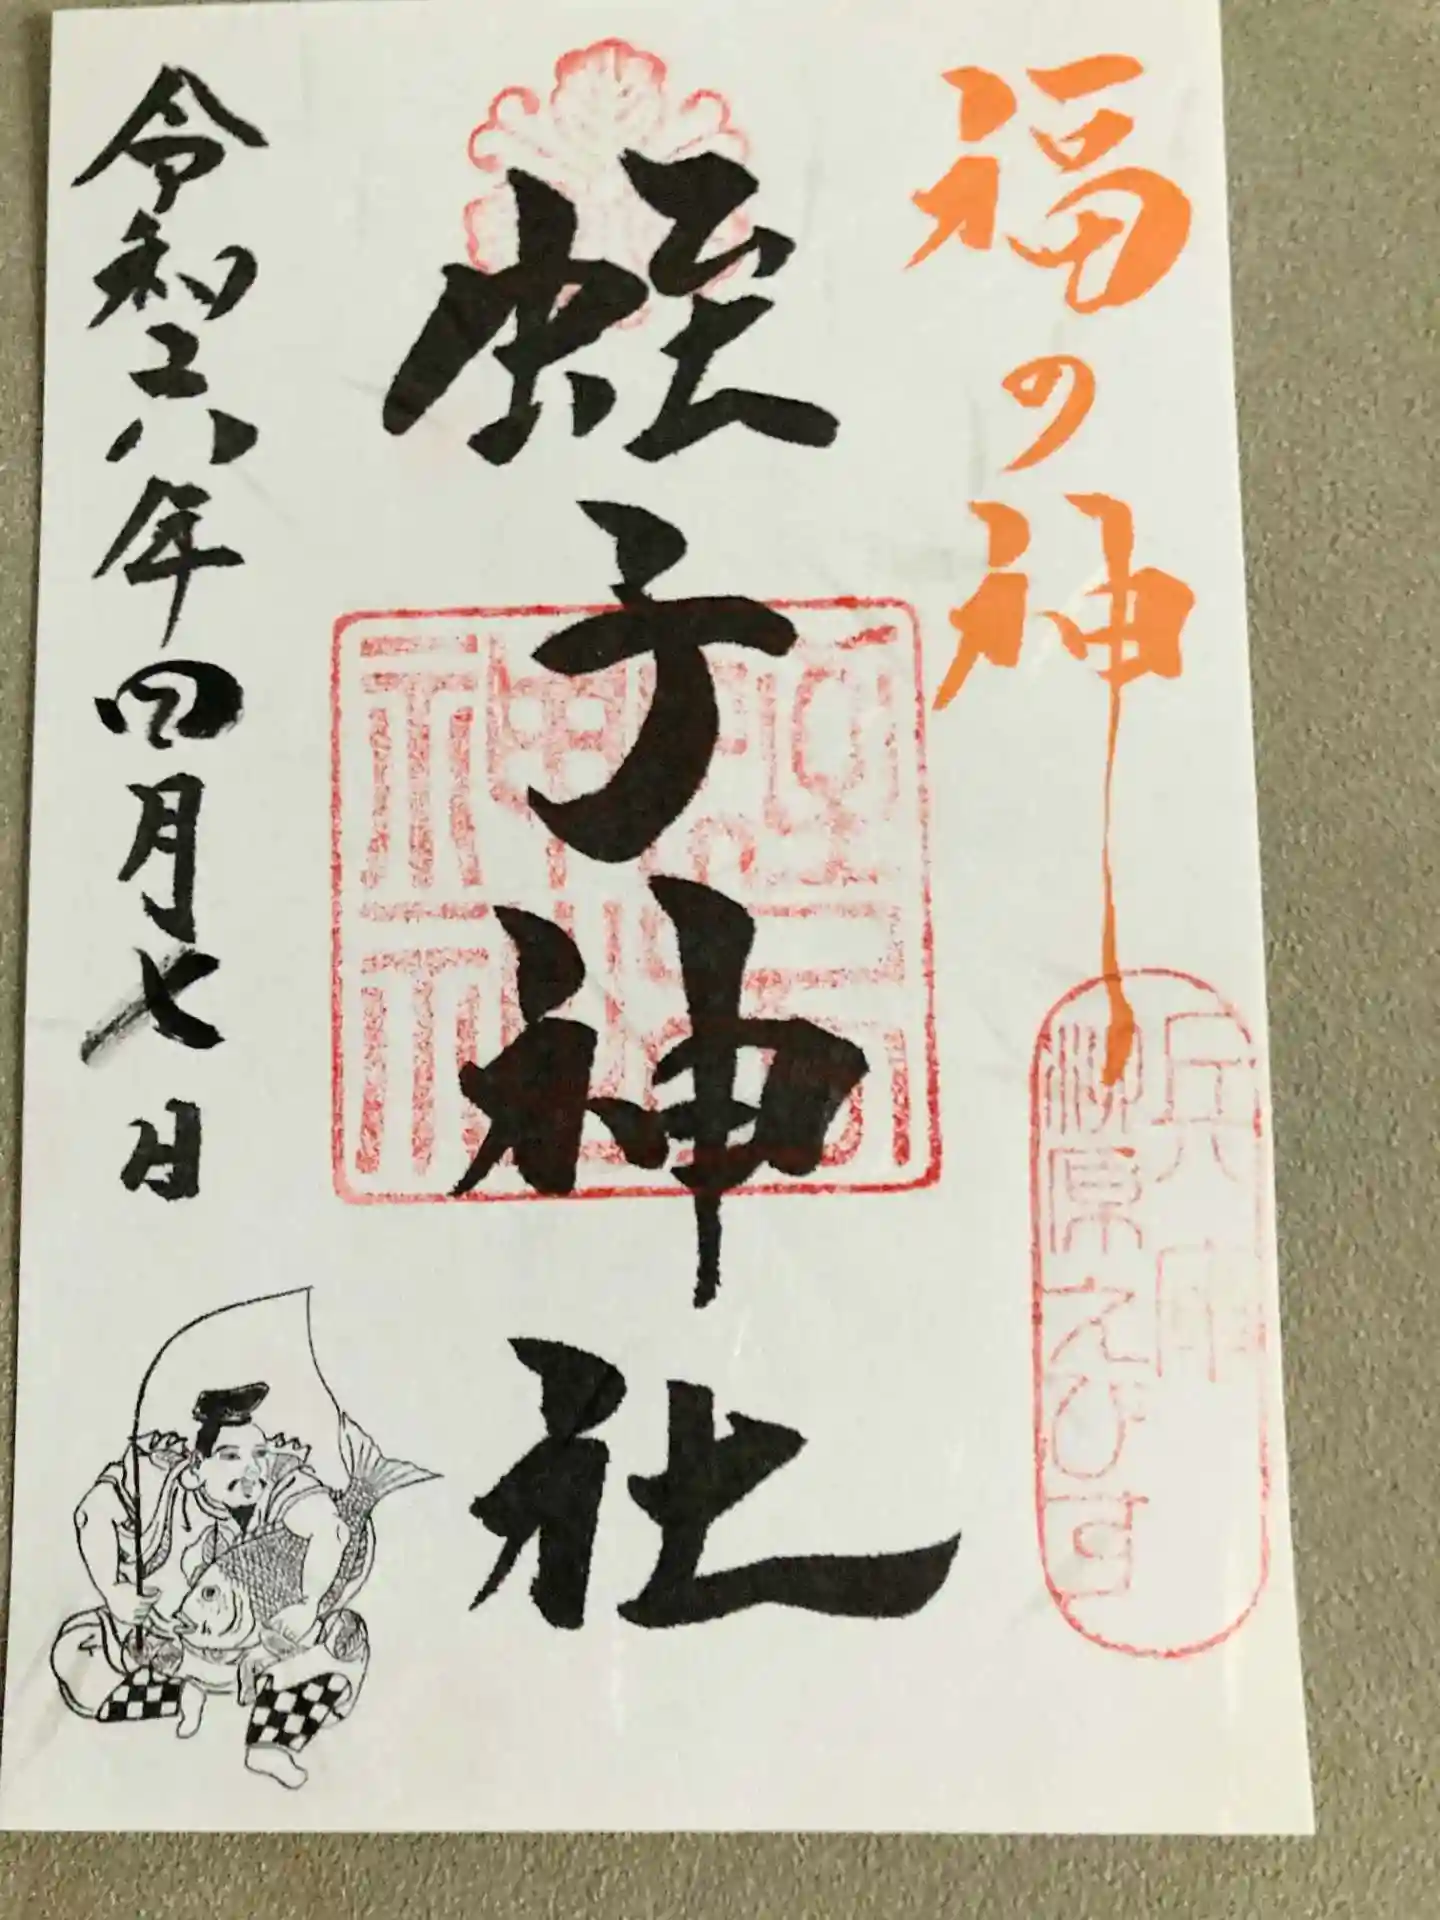 福の神
兵庫
柳原えびす
蛭子神社
令和六年四月七日